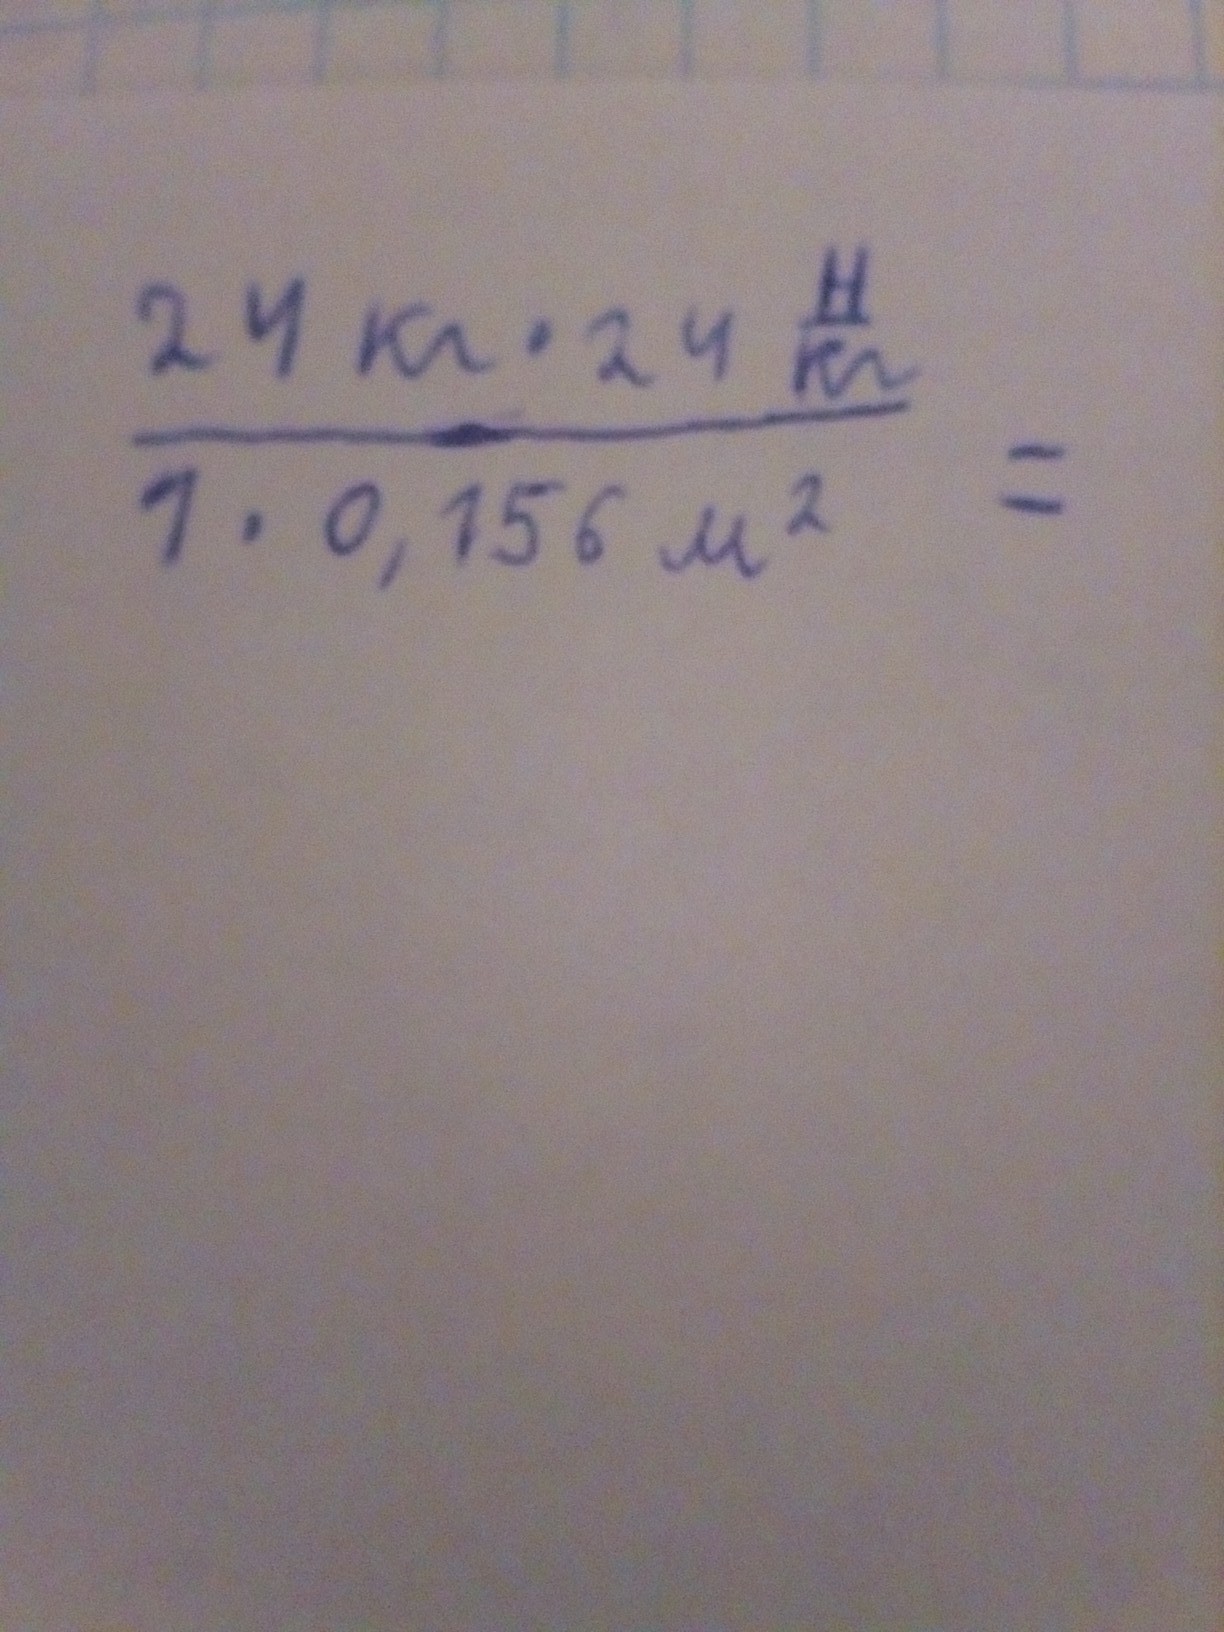 24 кг · 24 Н/кг
1 · 0,156 м² =